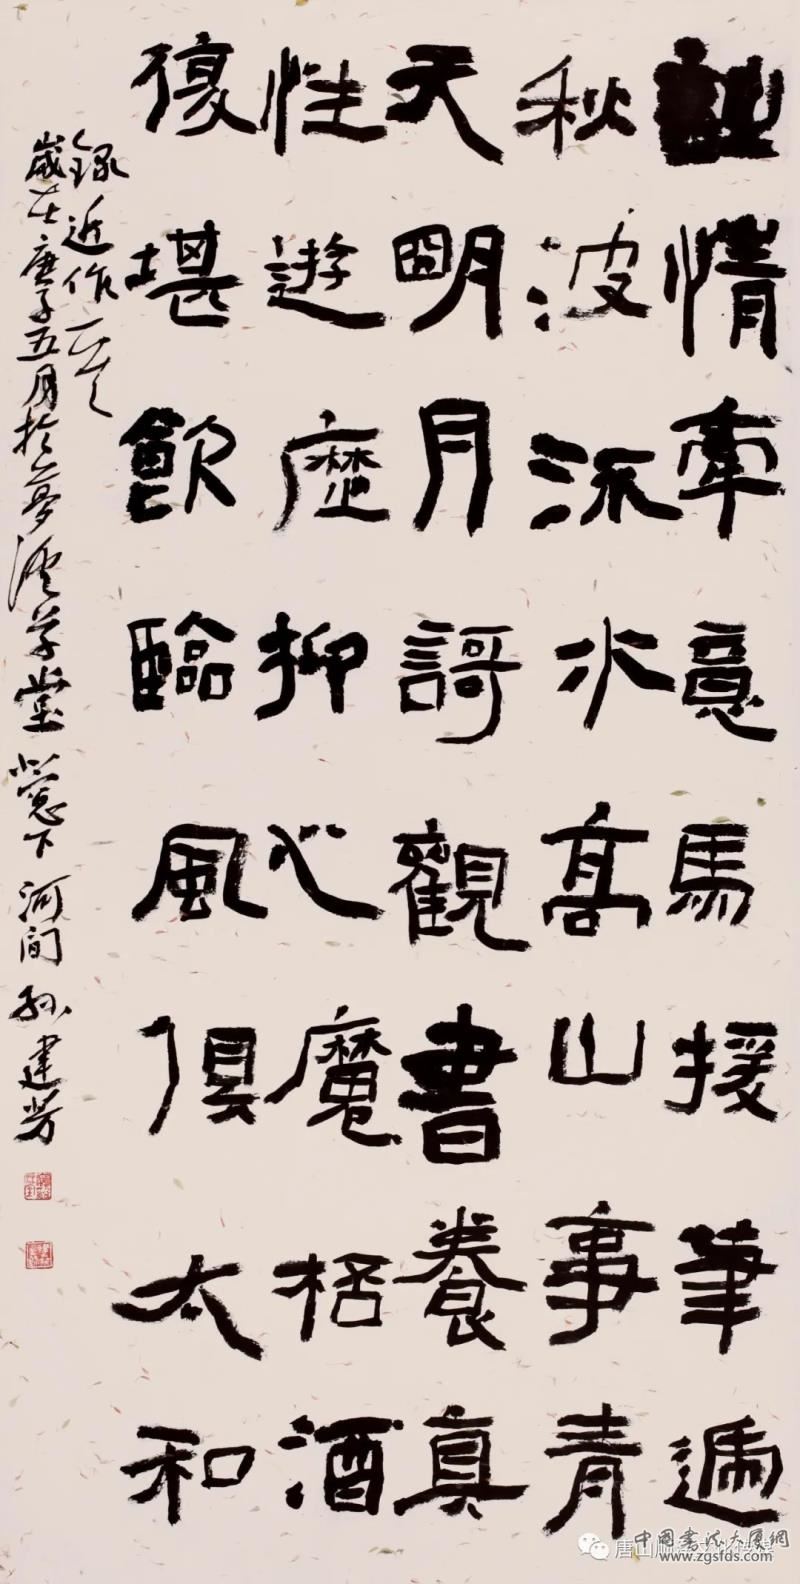 詩情牽意馬援筆遞
秋波流水高山事青
天明月謌觀書養真
性遊歷抑心魔桮酒
復堪飲臨風俱太和
錄近作一首
歲在庚子五月於夢溪草堂北窗下河間孫建芳
唐山
中國書法大厦網
www.zgsfds.com